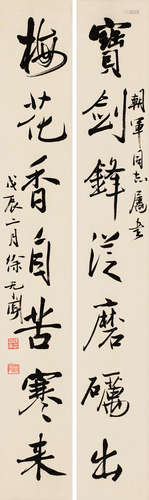 寶劍鋒從磨礪出
朝軍同志屬書
梅花香自苦寒来
戊辰二月徐元聞